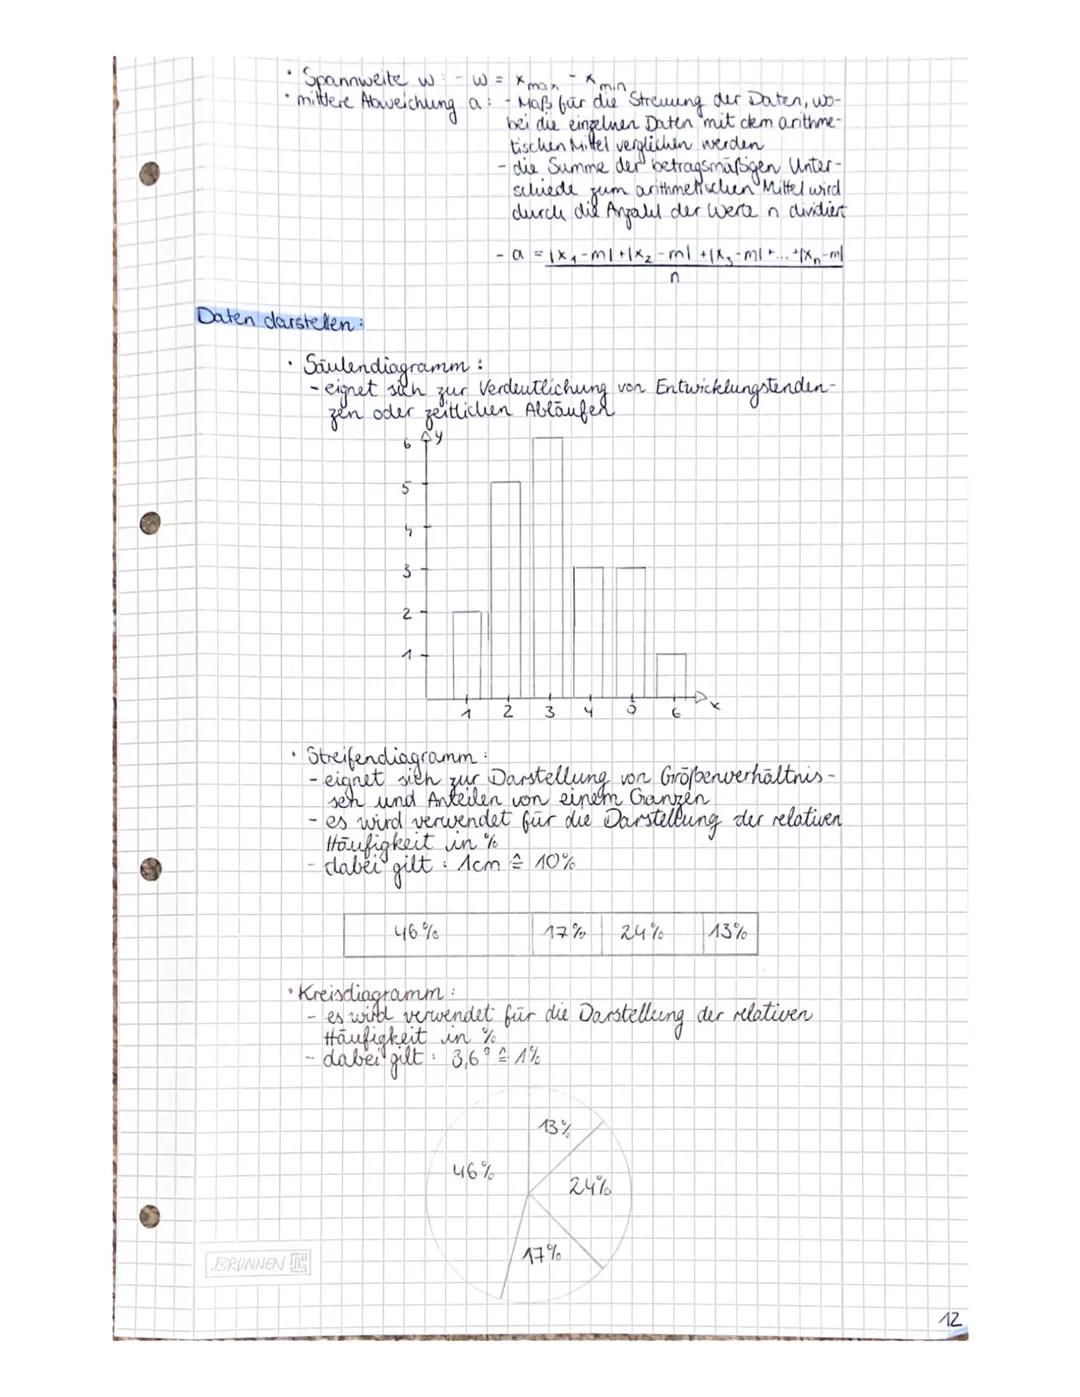 • Spannweite w: - w = x max - x min
• mittlere Abweichung a: - Maß für die Streuung der Daten, wo-
bei die einzelnen Daten mit dem arithme-
tischen Mittel verglichen werden
- die Summe der betragsmäßigen Unter-
schiede zum arithmetischen Mittel wird
durch die Anzahl der Werte n dividiert
- a = |x₁-m|+|x₂-m|+|x₃-m|+...+|xₙ-m|
n
Daten darstellen:
• Säulendiagramm:
- eignet sich zur Verdeutlichung von Entwicklungstenden-
zen oder zeitlichen Abläufen
6 y
5
4
3
2
1
1 2 3 4 5 6 x
• Streifendiagramm:
- eignet sich zur Darstellung von Größenverhältnis-
sen und Anteilen von einem Ganzen
- es wird verwendet für die Darstellung der relativen
Häufigkeit in %
- dabei gilt: 1cm ≙ 10%
46% 17% 24% 13%
• Kreisdiagramm:
- es wird verwendet für die Darstellung der relativen
Häufigkeit in %
- dabei gilt: 3,6° ≙ 1%
13%
46%
24%
17%
BRUNNEN
12